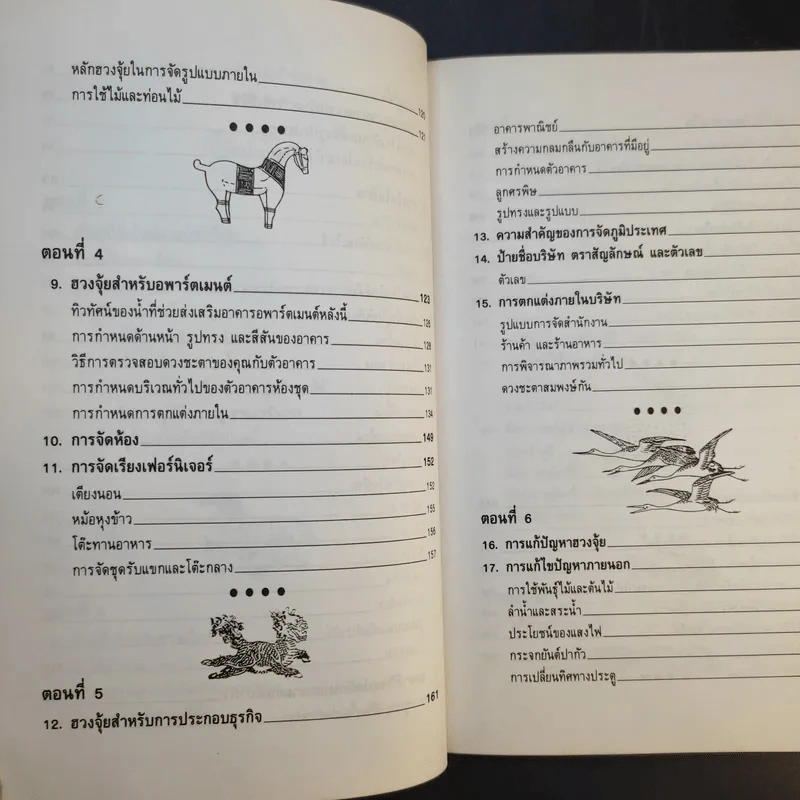 หลักฮวงจุ้ยในการจัดรูปแบบภายใน 120
การใช้ไม้และท่อนไม้ 121
ตอนที่ 4
9. ฮวงจุ้ยสำหรับอพาร์ตเมนต์ 123
ทิวทัศน์ของน้ำที่ช่วยส่งเสริมอาคารอพาร์ตเมนต์หลังนี้ 126
การกำหนดด้านหน้า รูปทรง และสีสันของอาคาร 128
วิธีการตรวจสอบดวงชะตาของคุณกับตัวอาคาร 131
การกำหนดบริเวณทั่วไปของตัวอาคารห้องชุด 131
การกำหนดการตกแต่งภายใน 134
10. การจัดห้อง 149
11. การจัดเรียงเฟอร์นิเจอร์ 152
เตียงนอน 152
หม้อหุงข้าว 155
โต๊ะทานอาหาร 156
การจัดชุดรับแขกและโต๊ะกลาง 157
ตอนที่ 5
12. ฮวงจุ้ยสำหรับการประกอบธุรกิจ 161
อาคารพาณิชย์
สร้างความกลมกลืนกับอาคารที่มีอยู่
การกำหนดตัวอาคาร
ลูกศรพิษ
รูปทรงและรูปแบบ
13. ความสำคัญของการจัดภูมิประเทศ
14. ป้ายชื่อบริษัท ตราสัญลักษณ์ และตัวเลข
ตัวเลข
15. การตกแต่งภายในบริษัท
รูปแบบการจัดสำนักงาน
ร้านค้า และร้านอาหาร
การพิจารณาภาพรวมทั่วไป
ดวงชะตาสมพงษ์กัน
ตอนที่ 6
16. การแก้ปัญหาฮวงจุ้ย
17. การแก้ไขปัญหาภายนอก
การใช้พันธุ์ไม้และต้นไม้
ลำน้ำและสระน้ำ
ประโยชน์ของแสงไฟ
กระจกยันต์ปากัว
การเปลี่ยนทิศทางประตู